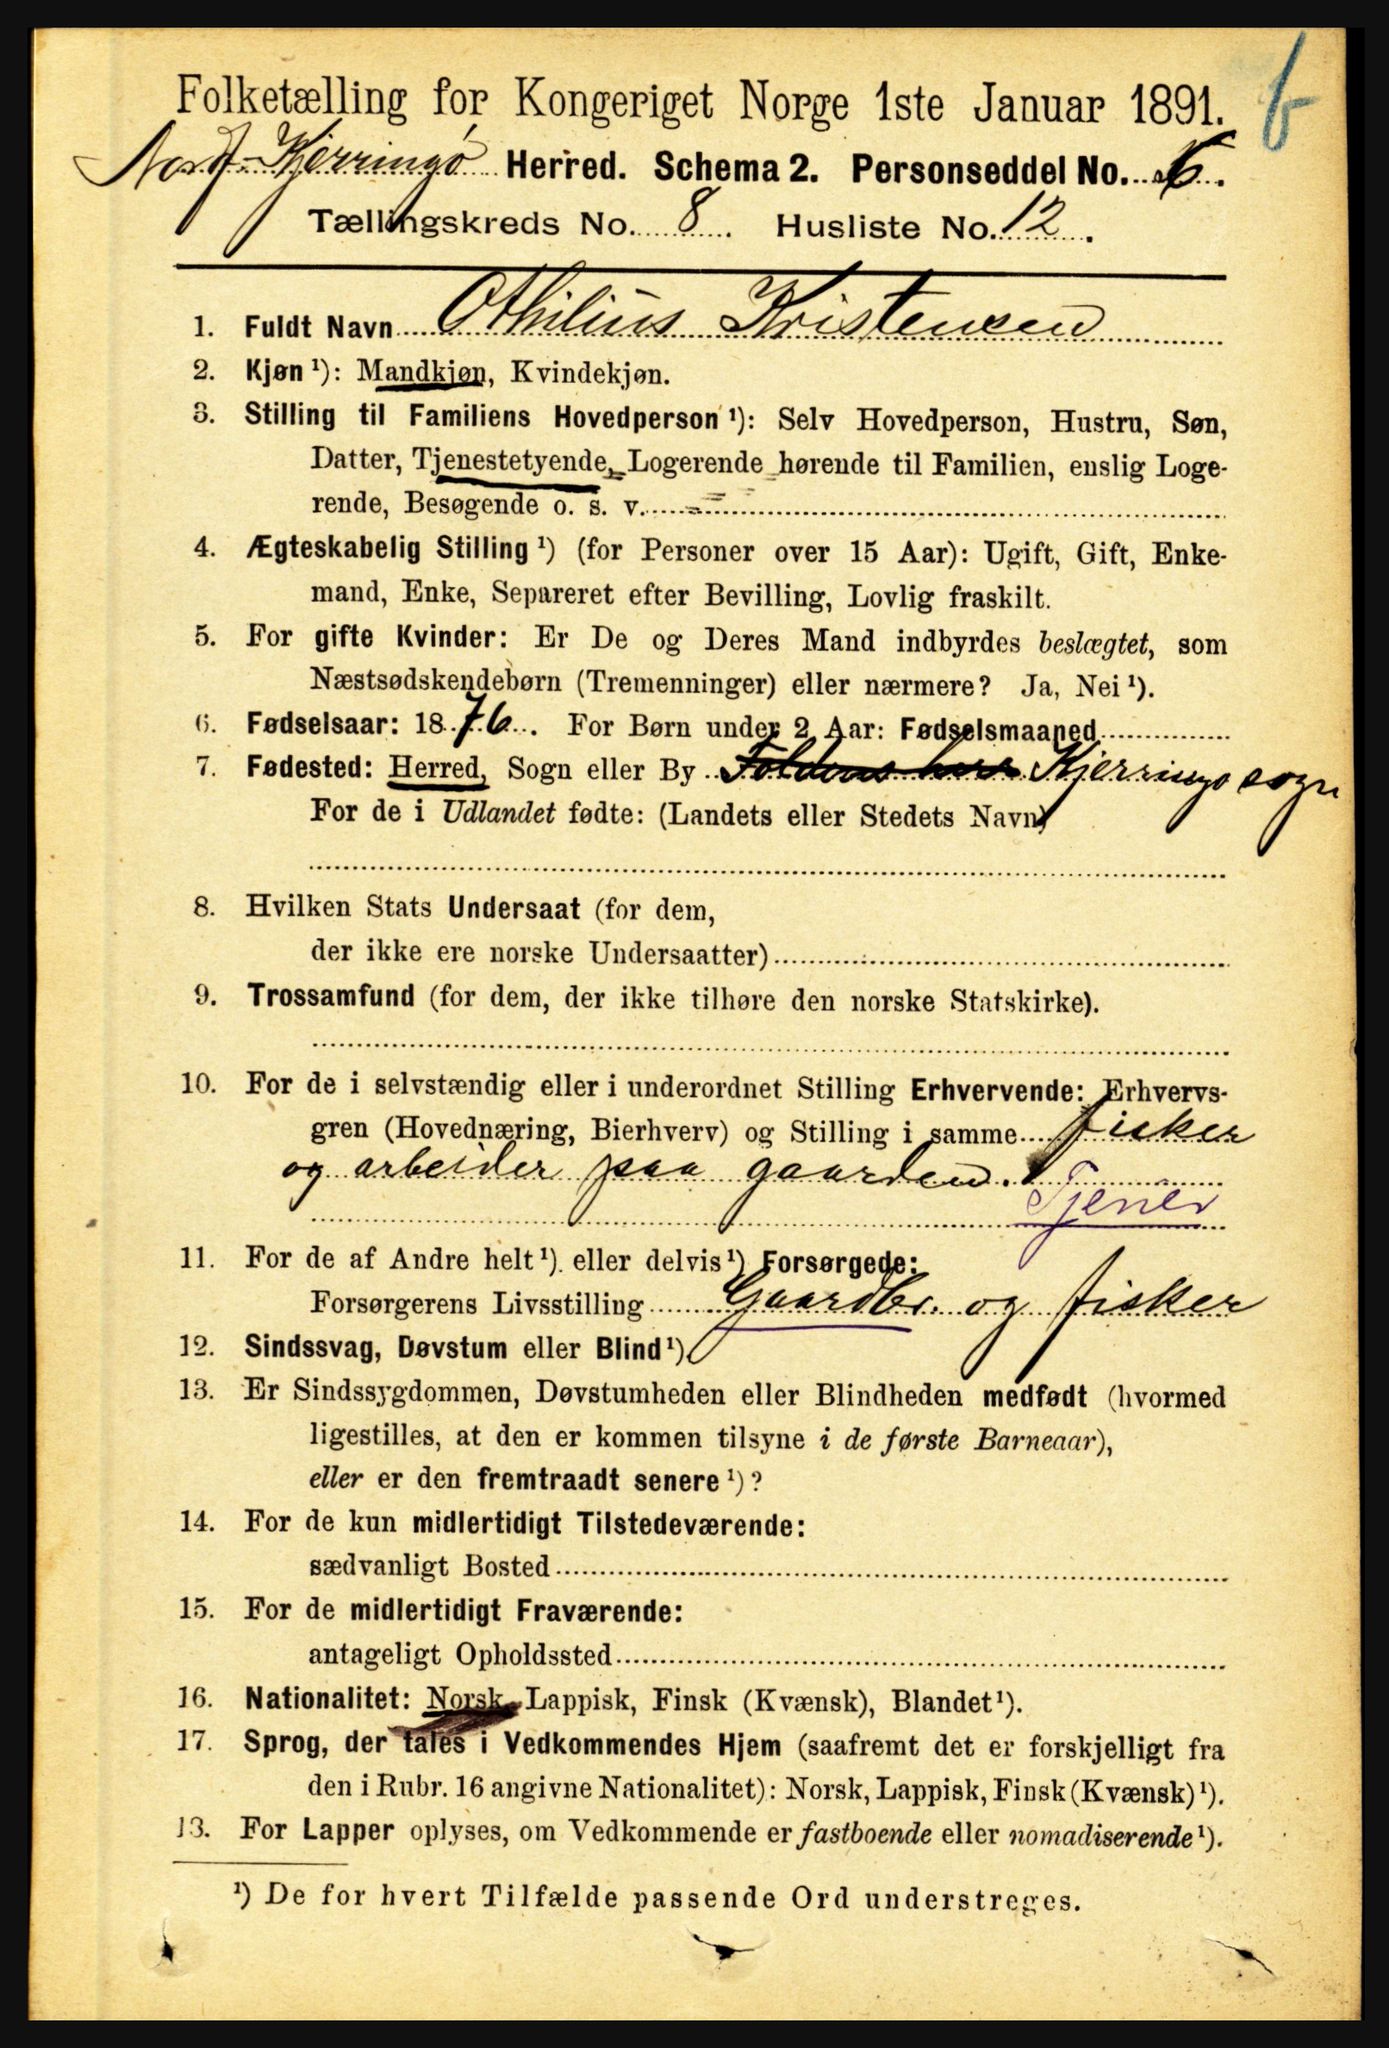 6
Folketælling for Kongeriget Norge 1ste Januar 1891.
Nordf. Kjerringø Herred. Schema 2. Personseddel No. 6.
Tællingskreds No. 8. Husliste No. 12.
1. Fuldt Navn Othilius Kristensen
2. Kjøn ¹): Mandkjøn, Kvindekjøn.
3. Stilling til Familiens Hovedperson ¹): Selv Hovedperson, Hustru, Søn,
Datter, Tjenestetyende, Logerende hørende til Familien, enslig Loge-
rende, Besøgende o. s. v.
4. Ægteskabelig Stilling ¹) (for Personer over 15 Aar): Ugift, Gift, Enke-
mand, Enke, Separeret efter Bevilling, Lovlig fraskilt.
5. For gifte Kvinder: Er De og Deres Mand indbyrdes beslægtet, som
Næstsødskendebørn (Tremenninger) eller nærmere? Ja, Nei ¹).
6. Fødselsaar: 1876. For Børn under 2 Aar: Fødselsmaaned
7. Fødested: Herred, Sogn eller By Foldens Kjerringø sogn
For de i Udlandet fødte: (Landets eller Stedets Navn)
8. Hvilken Stats Undersaat (for dem,
der ikke ere norske Undersaatter)
9. Trossamfund (for dem, der ikke tilhøre den norske Statskirke).
10. For de i selvstændig eller i underordnet Stilling Erhvervende: Erhvervs-
gren (Hovednæring, Bierhverv) og Stilling i samme fisker
og arbeider paa gaarden.
Tjener
11. For de af Andre helt ¹) eller delvis ¹) Forsørgede:
Forsørgerens Livsstilling Gaardbr. og fisker
12. Sindssvag, Døvstum eller Blind ¹).
13. Er Sindssygdommen, Døvstumheden eller Blindheden medfødt (hvormed
ligestilles, at den er kommen tilsyne i de første Barneaar),
eller er den fremtraadt senere ¹)?
14. For de kun midlertidigt Tilstedeværende:
sædvanligt Bosted
15. For de midlertidigt Fraværende:
antageligt Opholdssted
16. Nationalitet: Norsk, Lappisk, Finsk (Kvænsk), Blandet ¹).
17. Sprog, der tales i Vedkommendes Hjem (saafremt det er forskjelligt fra
den i Rubr. 16 angivne Nationalitet): Norsk, Lappisk, Finsk (Kvænsk) ¹).
18. For Lapper oplyses, om Vedkommende er fastboende eller nomadiserende ¹).
¹) De for hvert Tilfælde passende Ord understreges.